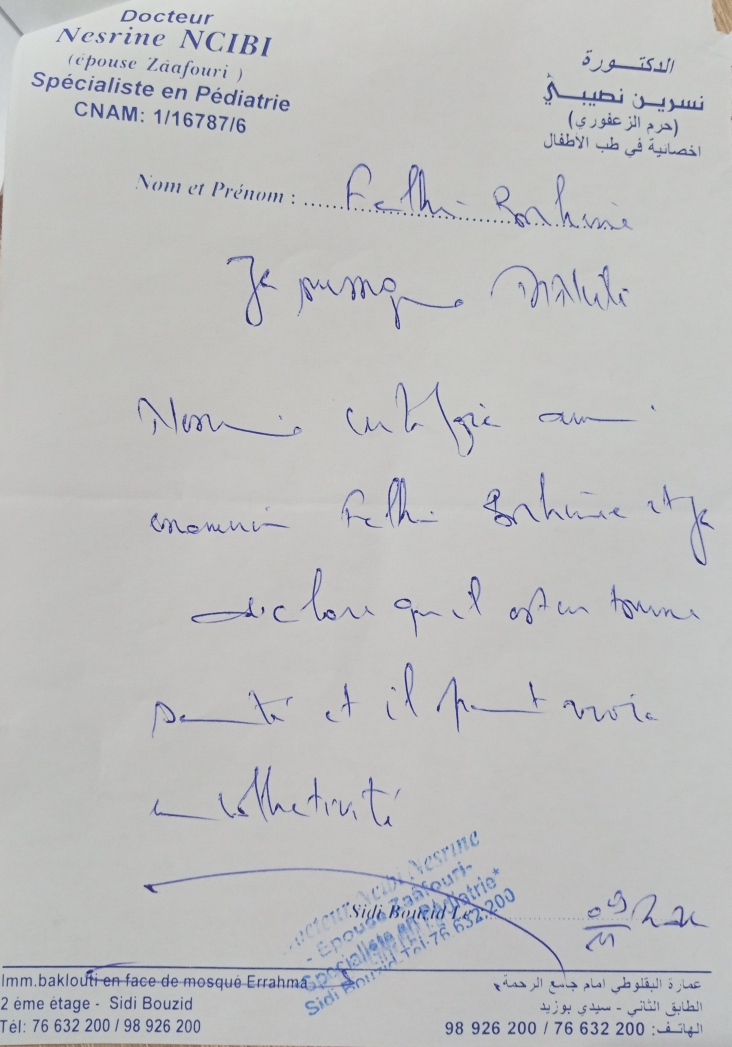 Docteur
Nesrine NCIBI
(épouse Zâafouri )
Spécialiste en Pédiatrie
CNAM: 1/16787/6
الدكتـــورة
نسريـن نصيبـــي
(حرم الزعفوري)
اخصائية في طب الأطفال
Nom et Prénom : Fethi
Je
Nesrine certifie avoir
examiné Fethi et je
déclare qu'il est en bonne
santé et il peut vivre
en collectivité
Docteur Ncibi Nesrine
- Epouse Zaafouri-
Spécialiste en Pédiatrie*
Sidi Bouzid-Tél-76.632.200
Sidi Bouzid Le
09
11
Imm.baklouti en face de mosqué Errahma
2 éme étage - Sidi Bouzid
Tél: 76 632 200 / 98 926 200
عمارة البقلوطي امام جامع الرحمة
الطابق الثاني - سيدي بوزيد
الهاتـف: 76 632 200 / 98 926 200